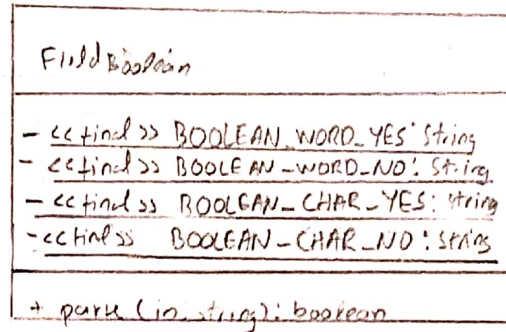 FieldBoolean
- <<final>> BOOLEAN_WORD_YES: String
- <<final>> BOOLEAN_WORD_NO: String
- <<final>> BOOLEAN_CHAR_YES: String
- <<final>> BOOLEAN_CHAR_NO: String
+ parse (in string): boolean